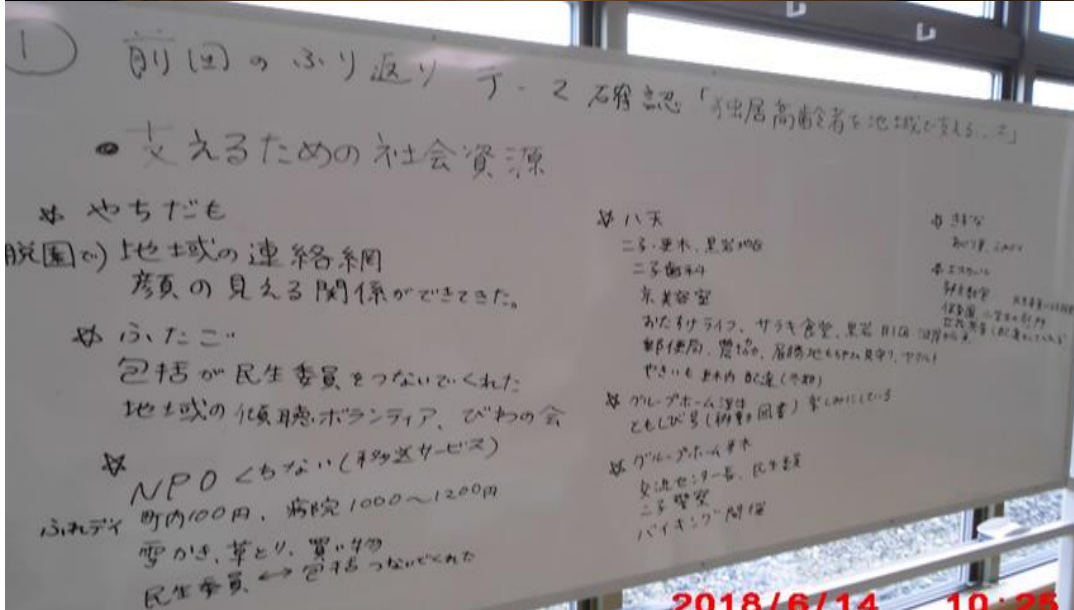 ① 前回のふり返り テーマ確認「独居高齢者を地域で支える
●支えるための社会資源
☆ やちだも
脱園で) 地域の連絡網
顔の見える関係ができてきた。
☆ ふたご
包括が民生委員をつないでくれた
地域の傾聴ボランティア、びわの会
☆ NPO くちない(移送サービス)
ふれデイ 町内100円、病院1000〜1200円
雪かき、草とり、買い物
民生委員 ↔ 包括つないでくれた
☆ 八天
二子・更木、黒岩地区
二子歯科
京美容室
おたすけライフ、サラキ食堂、黒岩 月1回
郵便局、農協、見守り、ヤクルト
やきいも 更木内 配達(冬期)
☆ グループホーム
ともしび号(移動図書)楽しみにしている
☆ グループホーム更木
交流センター長、民生委員
二子警察
バイキング開催
☆ きずな
☆
保育園、小学生の
2018/6/14 10:25